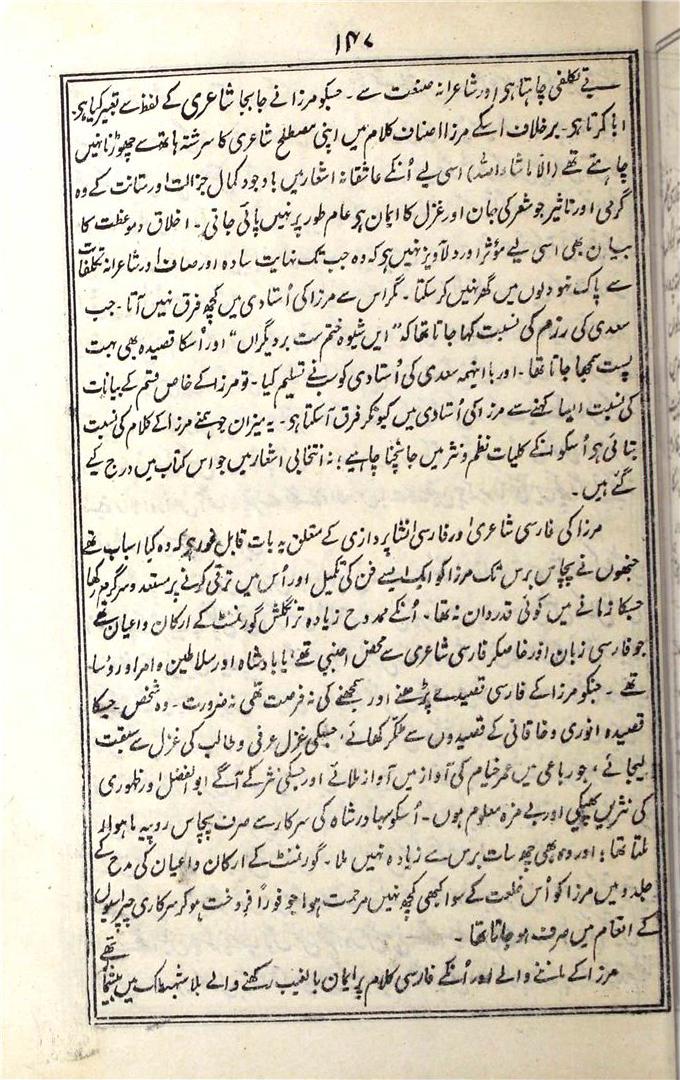 ۱۴۷
بے تکلفی چاہتا ہی اور شاعرانہ صنعت سے ۔ جسکو مرزا نے جابجا شاعری کے لفظ سے تعبیر کیا ہی۔
ابا کرتا ہی۔ برخلاف اسکے مرزا اصناف کلام میں اپنی مصطلح شاعری کا سررشتہ ہاتھ سے چھوڑنا نہیں
چاہتے تھے (الّا ماشاءاللہ) اسی لیے اُنکے عاشقانہ اشعار میں باوجود کمال جزالت اور متانت کے وہ
گرمی اور تاثیر جو شعر کی جان اور غزل کا ایمان ہی عام طور پر نہیں پائی جاتی۔ اخلاق و موعظت کا
بیان بھی اسی لیے مؤثر اور دلآویز نہیں ہی کہ وہ جب تک نہایت سادہ اور صاف اور شاعرانہ تکلفات
سے پاک نہو دلوں میں گھر نہیں کرسکتا ۔ مگر اس سے مرزا کی اُستادی میں کچھ فرق نہیں آتا ۔ جب
سعدی کی رزم کی نسبت کہا جاتا تھا کہ "ایں شیوہ ختم ست بر دیگراں" اور اُسکا قصیدہ بھی بہت
پست سمجھا جاتا تھا ۔ اور باایںہمہ سعدی کی اُستادی کو سبنے تسلیم کیا ۔ تو مرزا کے خاص قسم کے بیانات
کی نسبت ایسا کہنے سے مرزا کی اُستادی میں کیونکر فرق آسکتا ہی۔ یہ میزان جو ہمنے مرزا کے کلام کی نسبت
بتائی ہی اُسکو انکے کلیات نظم و نثر میں جانچنا چاہیے؛ نہ انتخابی اشعار میں جو اس کتاب میں درج کیے
گئے ہیں ۔
مرزا کی فارسی شاعری اور فارسی انشا پردازی کے متعلق یہ بات قابل غور ہی کہ وہ کیا اسباب تھے
جنھوں نے پچاس برس تک مرزا کو ایک ایسے فن کی تکمیل اور اُس میں ترقی کرنے پر مستعد و سرگرم رکھا
جسکا زمانے میں کوئی قدردان نہ تھا۔ اُنکے ممدوح زیادہ تر انگلش گورنمنٹ کے ارکان و اعیان تھے
جو فارسی زبان اور خاصکر فارسی شاعری سے محض اجنبی تھے، یا بادشاہ اور سلاطین و امرا و رؤسا
تھے ۔ جنکو مرزا کے فارسی قصیدے پڑھنے اور سمجھنے کی نہ فرصت تھی نہ ضرورت ۔ وہ شخص ۔ جسکا
قصیدہ انوری و خاقانی کے قصیدوں سے ٹکر کھائے، جسکی غزل عرفی و طالب کی غزل سے سبقت
لیجائے، جو رباعی میں عمر خیام کی آواز میں آواز ملائے اور جسکی نثر کے آگے ابوالفضل اور ظہوری
کی نثریں پھیکی اور بے مزہ معلوم ہوں ۔ اُسکو بہادر شاہ کی سرکار سے صرف پچاس روپیہ ماہوار
ملتا تھا؛ اور وہ بھی چھ سات برس سے زیادہ نہیں ملا۔ گورنمنٹ کے ارکان و اعیان کی مدح کے
جلدو میں مرزا کو اُس خلعت کے سوا کبھی کچھ نہیں مرحمت ہوا جو فوراً فروخت ہوکر سرکاری چپراسیوں
کے انعام میں صرف ہوجاتا تھا ۔
مرزا کے ماننے والے اور اُنکے فارسی کلام پر ایمان بالغیب رکھنے والے بلاشبہہ ملک میں بیشمار تھے